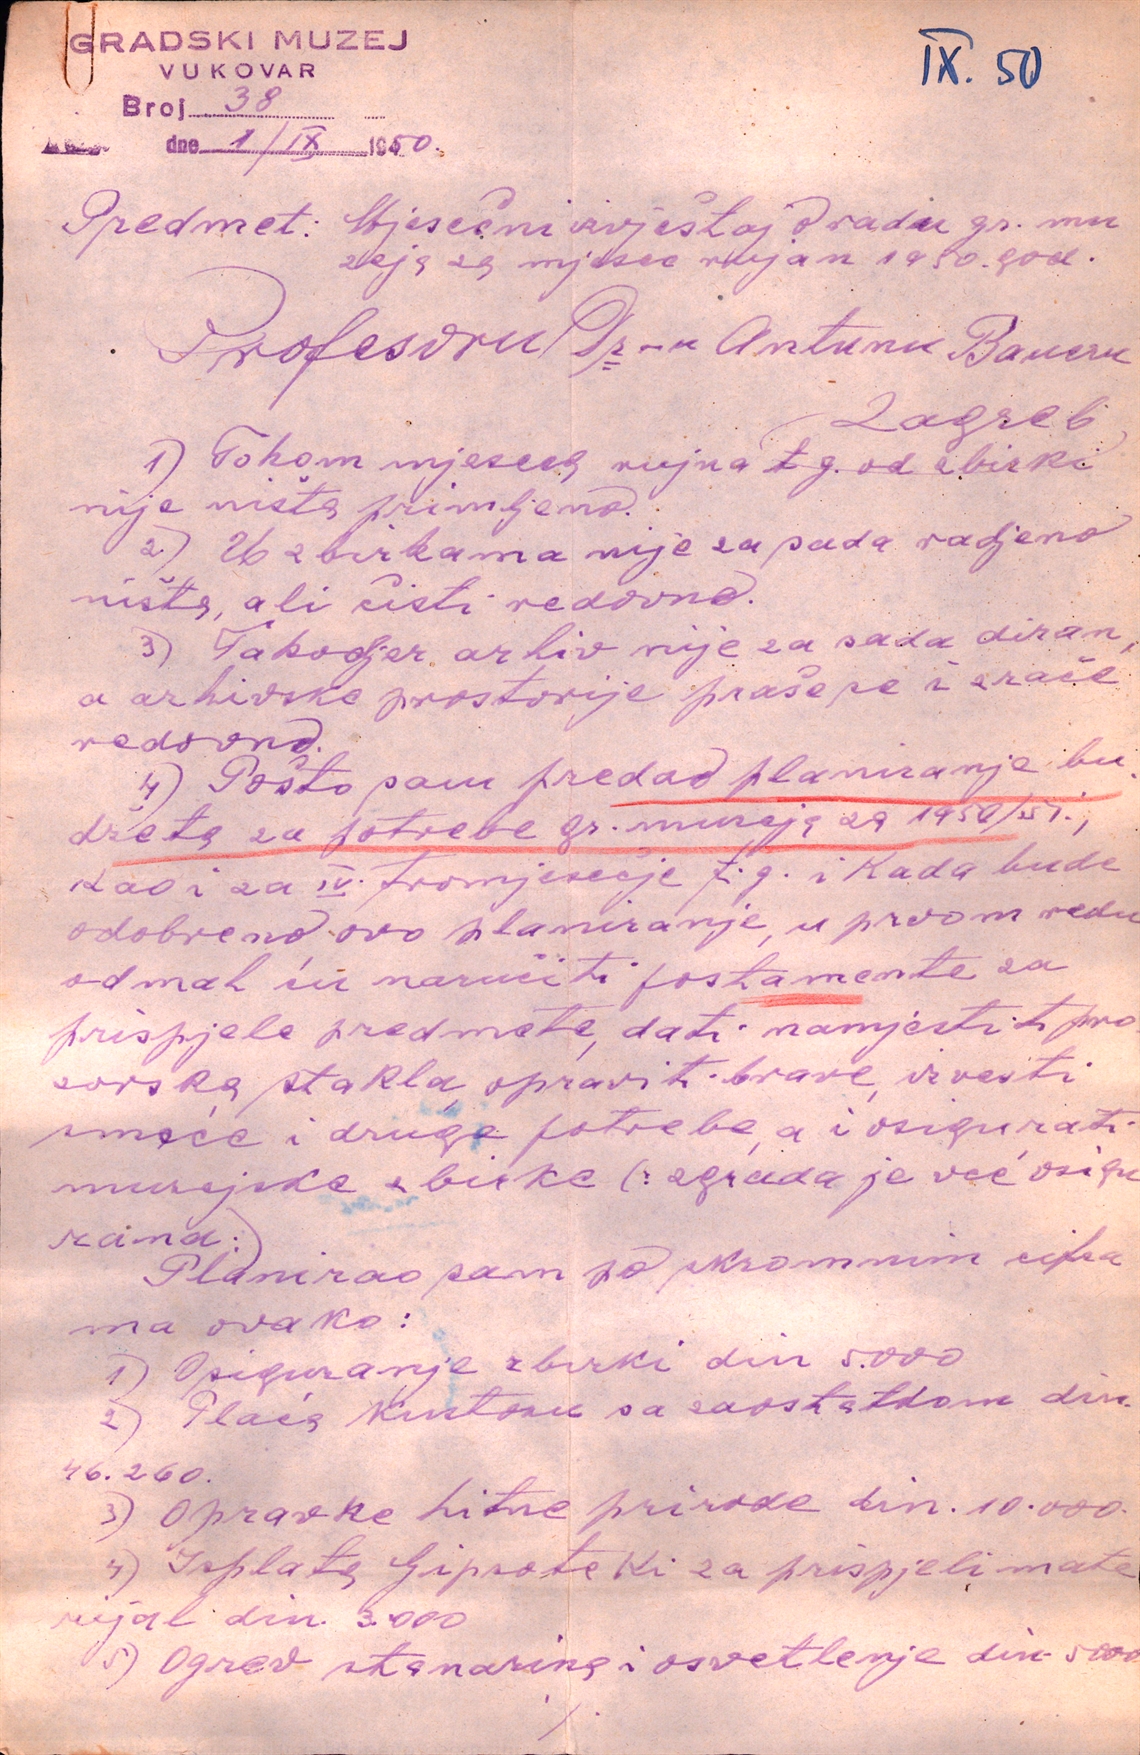 GRADSKI MUZEJ
VUKOVAR
IX. 50
Broj 38
dne 1/IX 1950.
Predmet: Mjesečni izvještaj o radu gr. mu
zeja za mjesec rujan 1950. god.
Profesoru Dr-u Antunu Baueru
Zagreb
1) Tokom mjeseca rujna t. g. od zbirki
nije ništa primljeno.
2) U zbirkama nije za sada radjeno
ništa, ali čisti redovno.
3) Takodjer arhiv nije za sada diran,
a arhivske prostorije praše se i zrače
redovno.
4) Pošto sam predao planiranje bu
džeta za potrebe gr. muzeja za 1950/51.,
kao i za IV. tromjesečje t. g. i kada bude
odobreno ovo planiranje, u prvom redu
odmah ću naručiti postamente za
prispjele predmete, dati namjestiti pro
zorska stakla, opraviti brave, izvesti
smeće i druge potrebe, a i osigurati
muzejske zbirke (: zgrada je već osigu
rana :)
Planirao sam po skromnim cifra
ma ovako:
1) Osiguranje zbirki din 5.000
2) Plaća kustosu sa zaostatkom din.
46.260.
3) Opravke hitne prirode din. 10.000.
4) Isplata Gipsoteki za prispjeli mate
rijal din. 3.000
5) Ogrev stanarina i osvetlenje din. 5000
./.